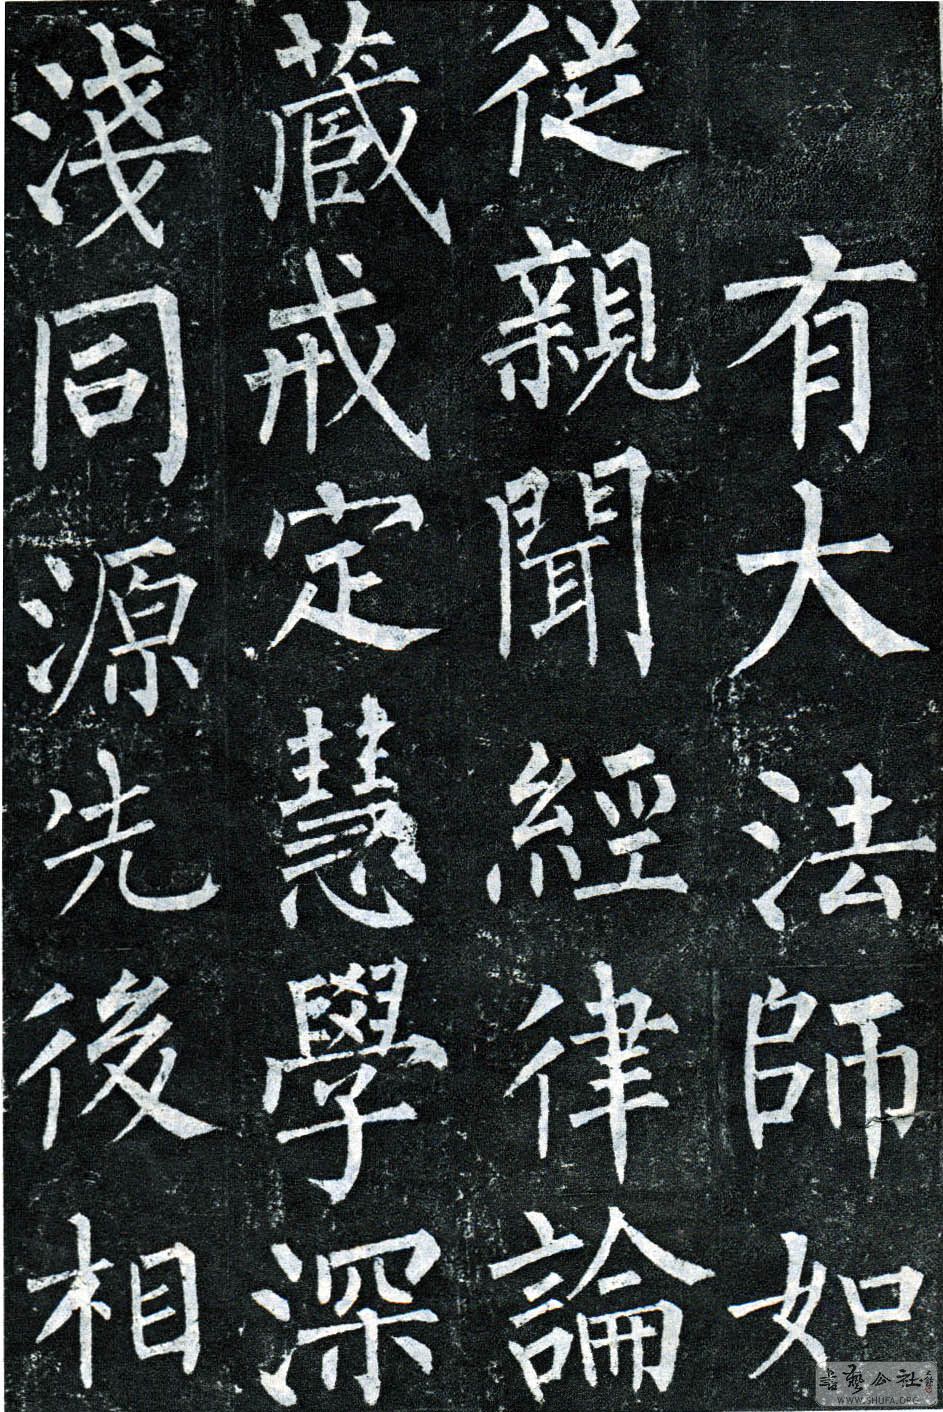 有大法師如
從親聞經律論
藏戒定慧學深
淺同源先後相
書藝公社
WWW.SHUFA.ORG